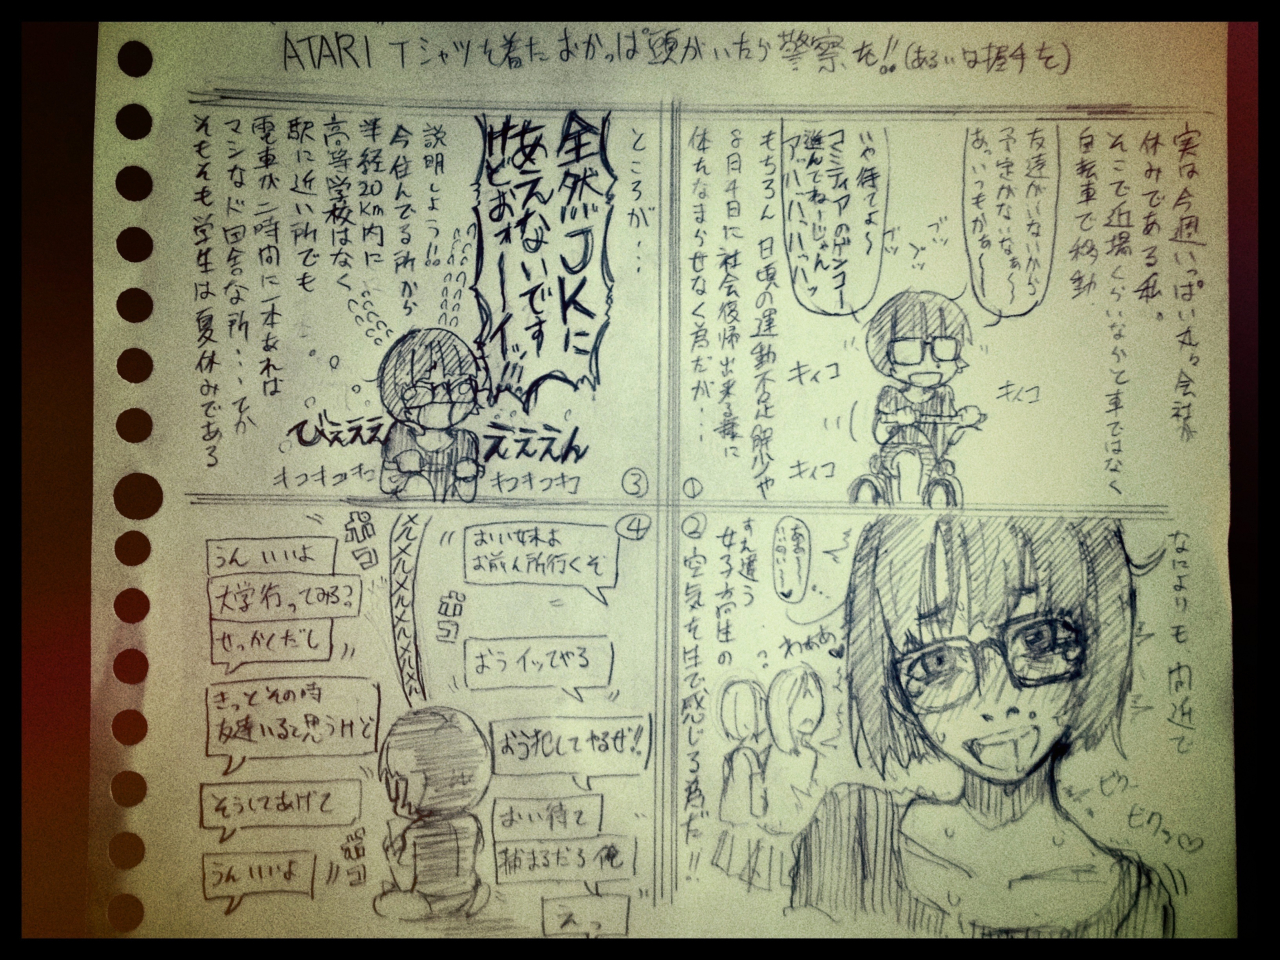 ATARI Tシャツを着たおかっぱ頭がいたら警察を!!(あるいは握手を)
実は今週いっぱい丸々会社が
休みである私。
そこで近場くらいなかて車ではなく
自転車で移動
友達がいないから
予定がないなぁ〜
あ、いつもかぁ〜
いや待てよ〜
コミティアのゲンコー
進んでねーじゃん
アッハッハッハッハッ
もちろん日頃の運動不足解消や
8日4日に社会復帰出来る様に
体をなまらせなく為だが…
ブッ
ブッ
ブッ
キィコ
キィコ
キィコ
①
なによりも間近で
ビクッ
ビクッ♡
わぁぁ
あぁ〜
いいのい〜♡
すれ違う
女子高生の
空気を生で感じる為だ!!
②
ところが…
全然JKに
あえないです
けどぉォーイッ!!
説明しよう!!
今住んでる所から
半径20km内に
高等学校はなく
駅に近い所でも
電車が二時間に一本あれば
マシなド田舎な所…てか
そもそも学生は夏休みである
びえええ
えええん
キコキコキコ
キコキコキコ
③
④
おい妹よ
お前ん所行くぞ
うんいいよ
大学行ってみる?
せっかくだし
おうイッてやる
きっとその時
友達いると思うけど
おう犯してやるぜ!!
そうしてあげて
おい待て
捕まるだろ俺
うんいいよ
えっ
メルメルメルメルメルメル
ポコ
ポコ
ポコ